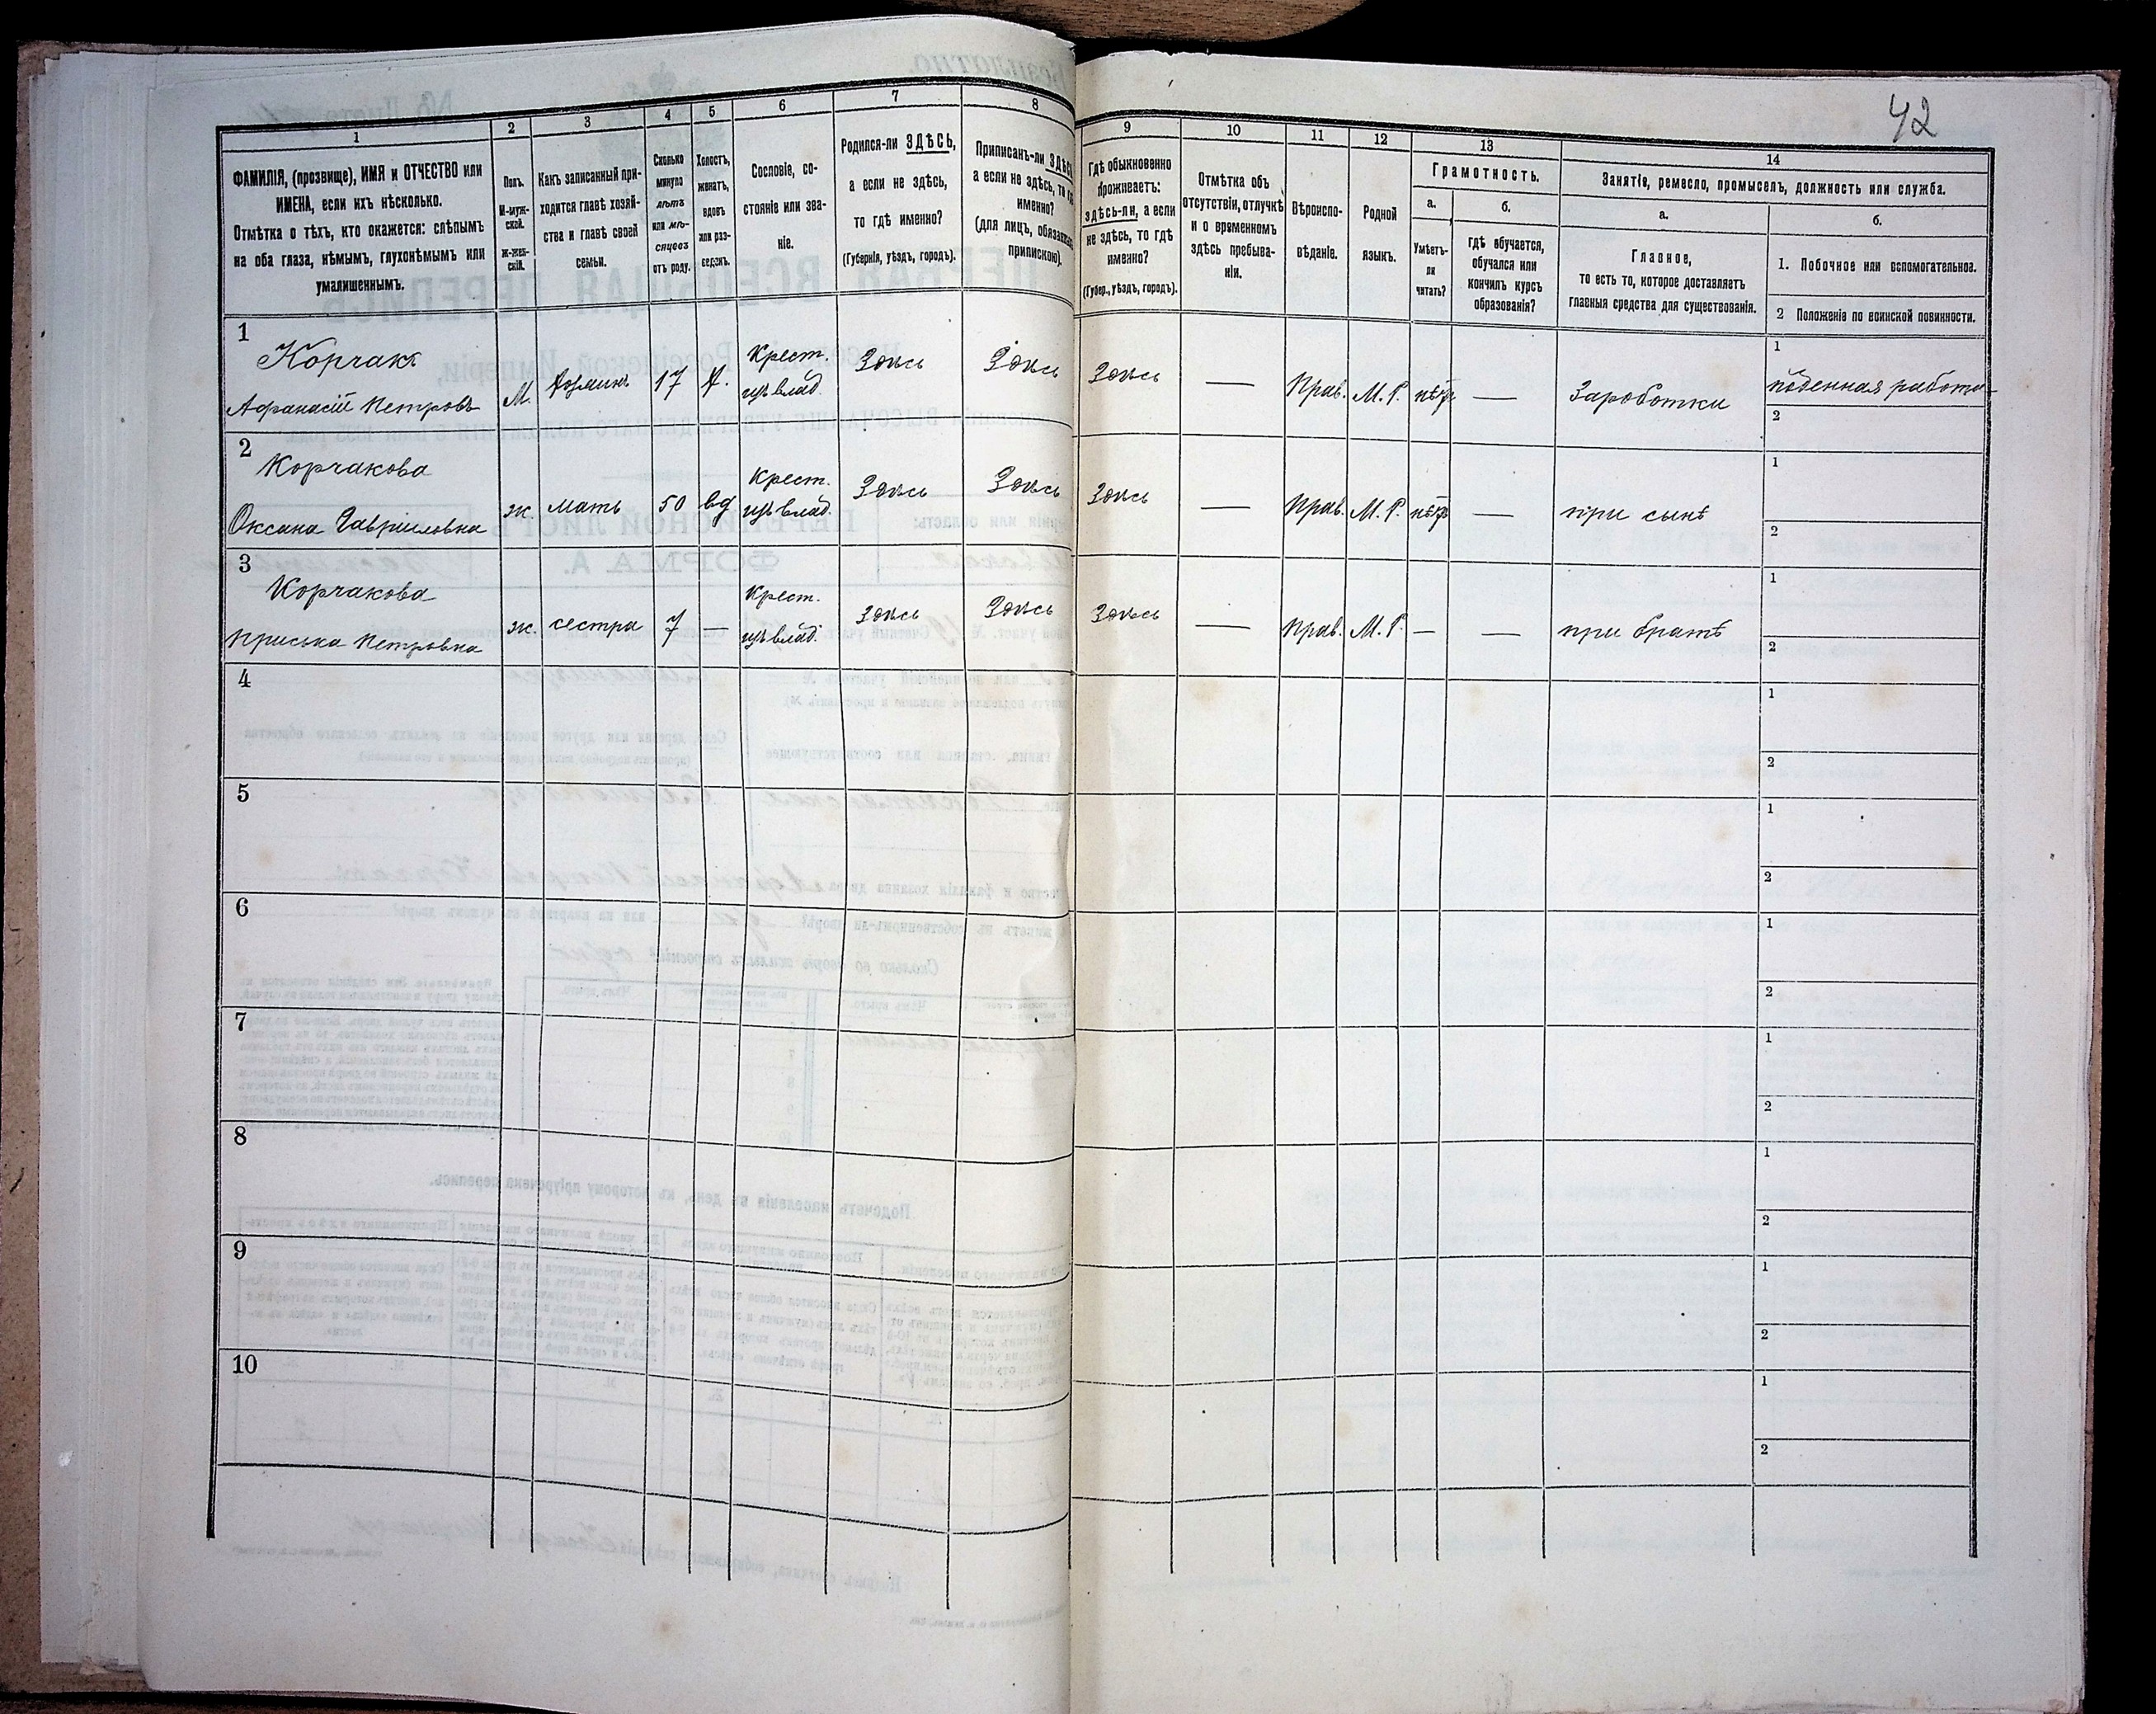 42
1
2
3
4
5
6
7
8
9
10
11
12
13
14
ФАМИЛІЯ, (прозвище), ИМЯ и ОТЧЕСТВО или
ИМЕНА, если ихъ нѣсколько.
Отмѣтка о тѣхъ, кто окажется: слѣпымъ
на оба глаза, нѣмымъ, глухонѣмымъ или
умалишеннымъ.
Полъ.
М-муж-
ской.
Ж-жен-
скій.
Какъ записанный при-
ходится главѣ хозяй-
ства и главѣ своей
семьи.
Сколько
минуло
лѣтъ
или мѣ-
сяцевъ
отъ роду.
Холостъ,
женатъ,
вдовъ
или раз-
веденъ.
Сословіе, со-
стояніе или зва-
ніе.
Родился-ли ЗДѢСЬ,
а если не здѣсь,
то гдѣ именно?
(Губернія, уѣздъ, городъ).
Приписанъ-ли
а если не здѣсь, то
именно?
(для лицъ,
припискою).
Гдѣ обыкновенно
проживаетъ:
здѣсь-ли, а если
не здѣсь, то гдѣ
именно?
(Губер., уѣздъ, городъ).
Отмѣтка объ
отсутствіи, отлучкѣ
и о временномъ
здѣсь пребыва-
ніи.
Вѣроиспо-
вѣданіе.
Родной
языкъ.
Грамотность.
а.
Умѣетъ-
ли
читать?
б.
гдѣ обучается,
обучался или
кончилъ курсъ
образованія?
Занятіе, ремесло, промыселъ, должность или служба.
а.
Главное,
то есть то, которое доставляетъ
главныя средства для существованія.
б.
1. Побочное или вспомогательное.
2 Положеніе по воинской повинности.
1
Корчакъ
Афанасій Петровъ
М.
хозяинъ
17
х.
Крест.
изъ влад.
Здѣсь
Здѣсь
Здѣсь
—
Прав.
М. Р.
нѣтъ
—
Заработки
1
поденная работа
2
2
Корчакова
Оксана Гавриловна
ж.
мать
50
вд
Крест.
изъ влад.
Здѣсь
Здѣсь
Здѣсь
—
Прав.
М. Р.
нѣтъ
—
при сынѣ
1
2
3
Корчакова
Приська Петровна
ж.
сестра
7
—
Крест.
изъ влад.
Здѣсь
Здѣсь
Здѣсь
—
Прав.
М. Р.
—
—
при братѣ
1
2
4
1
2
5
1
2
6
1
2
7
1
2
8
1
2
9
1
2
10
1
2